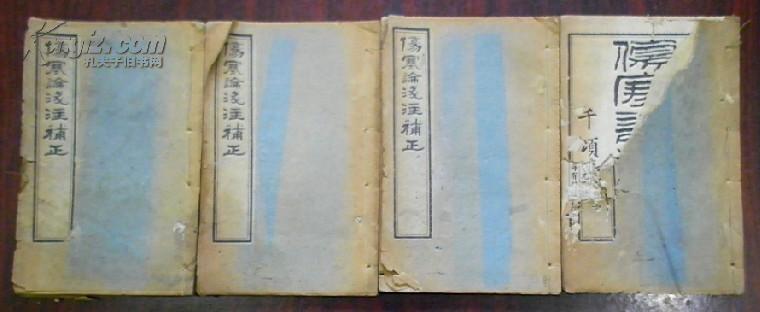 傷寒論淺注補正
傷寒論淺注補正
傷寒論淺注補正
傷寒論
千頃
孔夫子旧书网